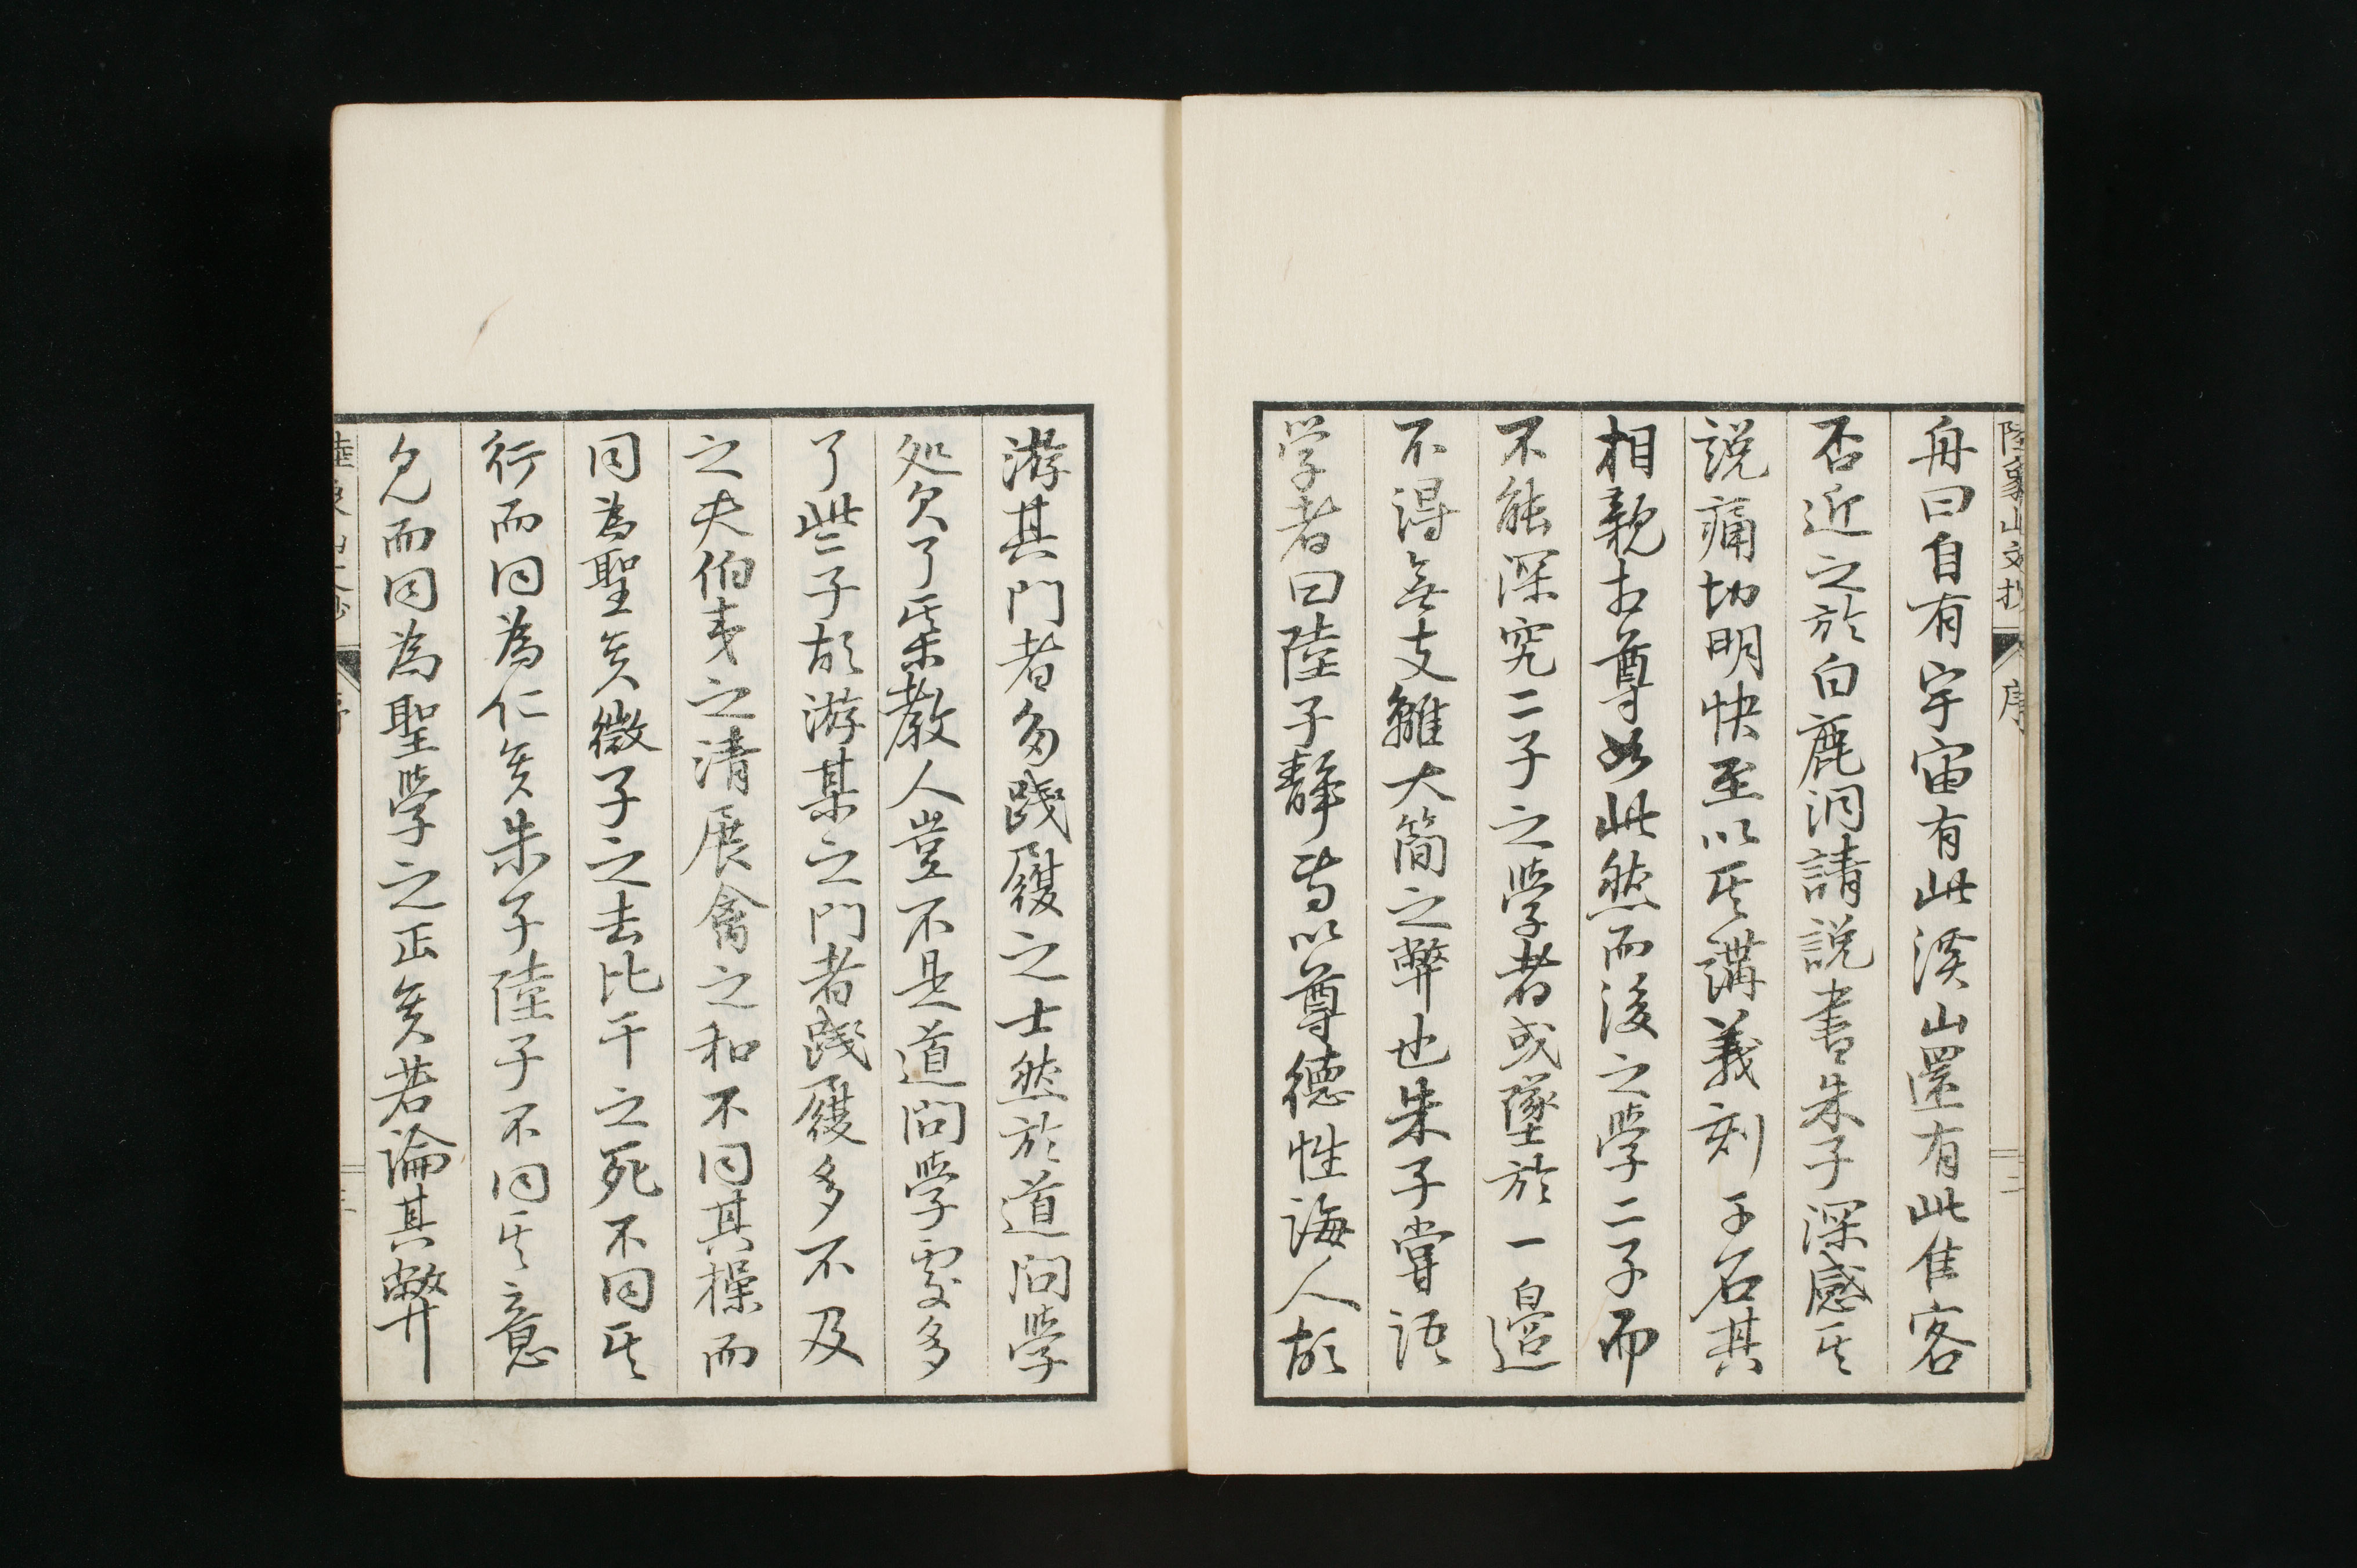 陸象山文抄 序 二
舟曰自有宇宙有此溪山還有此佳客
否近之於白鹿洞請説書朱子深感其
説痛切明快至以其講義刻于石其
相親相尊如此然而後之学二子而
不能深究二子之学者或墜於一邉
不得無支離大簡之弊也朱子嘗語
学者曰陸子静専以尊徳性誨人故
游其門者多踐履之士然於道問学
処欠了某教人豈不是道問学處多
了些子故游某之門者踐履多不及
之夫伯夷之清展禽之和不同其操而
同為聖矣微子之去比干之死不同其
行而同為仁矣朱子陸子不同其意
見而同為聖学之正矣若論其弊